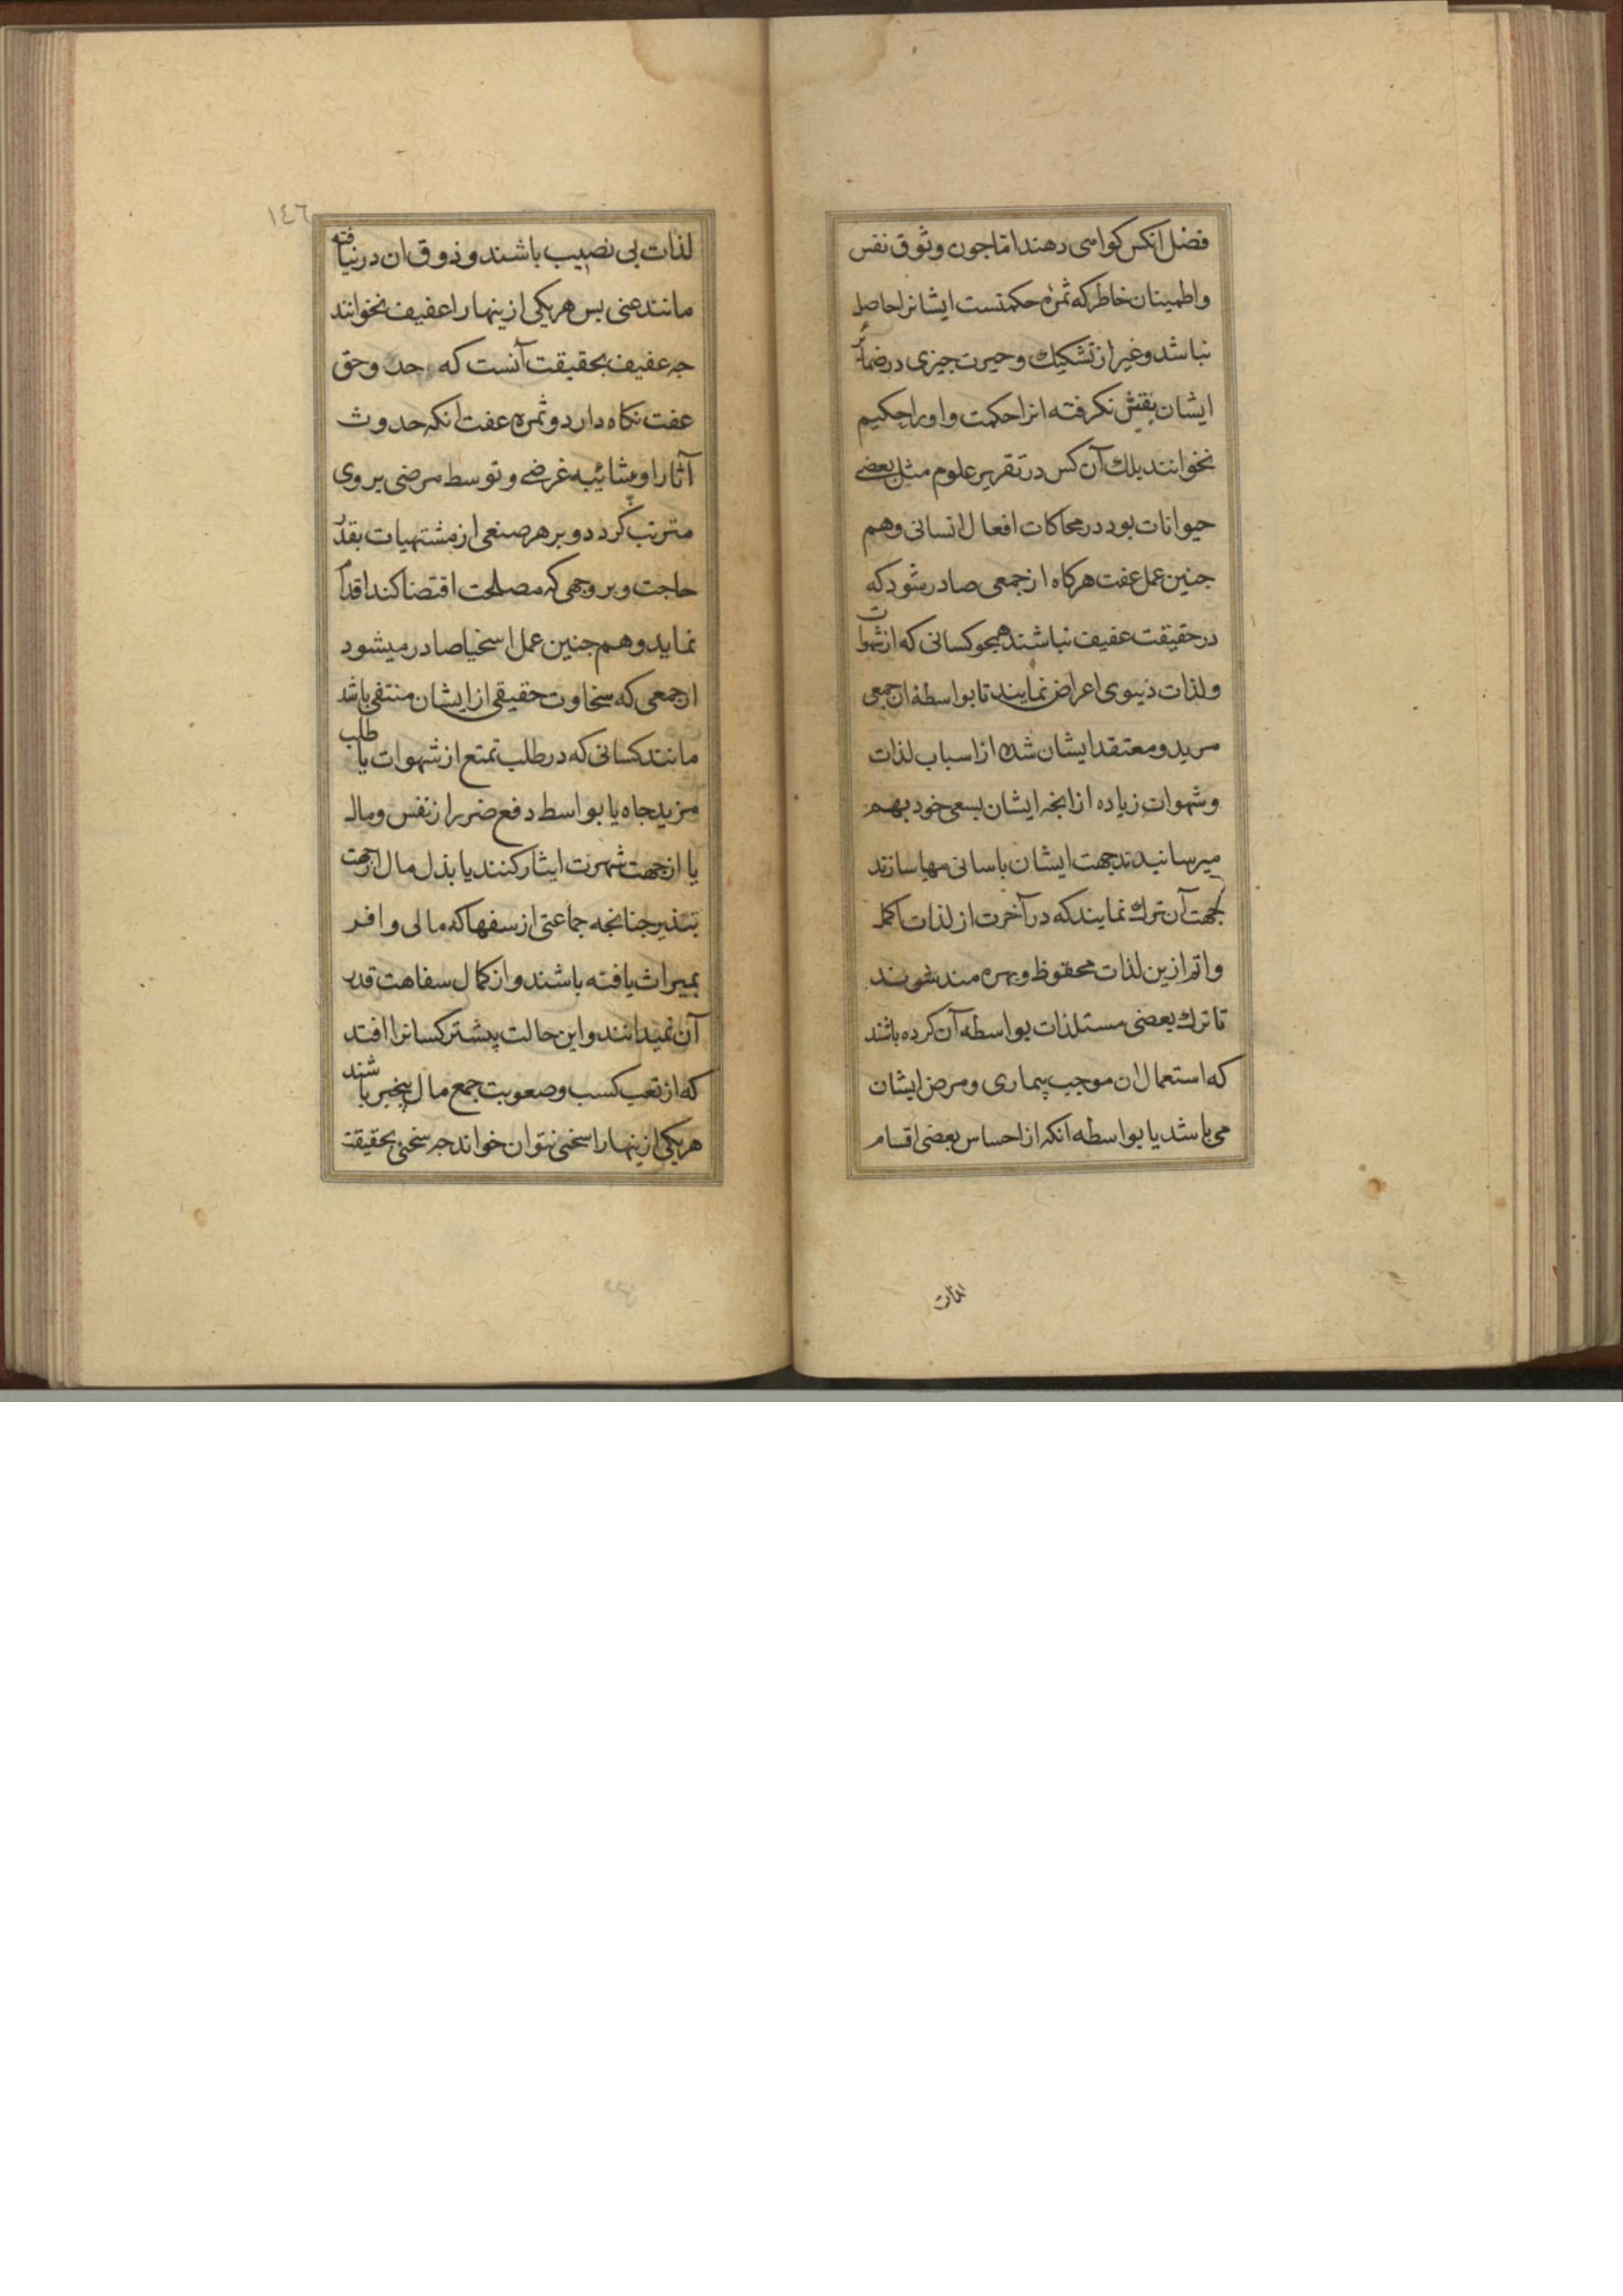 فضل انکس کواهی دهند اما جون وثوق نفس
واطمینان خاطر که ثمره حکمتست ایشانرا حاصل
نباشد وغیر از تشکیك وحیرت جیزی در ضمائر
ایشان بقش نکرفته انرا حکمت واورا حکیم
نخوانند بلك آن کس در تقریر علوم مثل بعضے
حیوانات بود در محاکات افعال انسانی وهم
جنین عمل عفت هرکاه از جمعی صادر شود که
در حقیقت عفیف نباشند همجو کسانی که از شهوات
ولذات دنیوی اعراض نمایند تا بواسطهٔ ان جمعی
مرید ومعتقد ایشان شده از اسباب لذات
وشهوات زیاده از انجه ایشان بسعی خود بهم
میرسانیدند جهت ایشان باسانی مهیا سازند
بجهت آن ترك نمایند که در آخرت از لذات اکمل
واتم ازین لذات محقوظ وبهره مند شوند
تا ترك بعضی مستلذات بواسطه آن کرده باشند
که استعمال ان موجب بیماری ومرض ایشان
می باشد یا بواسطه انکه از احساس بعضی اقسام
لذات
١٤٦
لذات بی نصیب باشند وذوق ان در نیافته
مانند عنی بس هریکی از ینها را عفیف نخوانند
جه عفیف بحقیقت آنست که حد وحق
عفت نکاه دارد وثمره عفت انکه حدوث
آثار او بشائبه غرضے وتوسط مرضی بروی
مترتب کردد وبر هر صنعی از مشتهیات بقدر
حاجت وبر وجهی که مصلحت اقتضا کند اقدام
نماید وهم جنین عمل اسخیا صادر میشود
از جمعی که سخاوت حقیقی از ایشان منتفی باشد
مانند کسانی که در طلب تمتع از شهوات یا طلب
مزید جاه یا بواسط دفع ضرر از نفس ومال
یا از جهت شهرت ایثار کنند یا بذل مال از جهت
تبذیر جنانجه جماعتی از سفها که مالی وافر
بمیراث یافته باشند واز کمال سفاهت قدر
آن نمیدانند واین حالت پیشتر کسانرا افتد
که از تعب کسب وصعوبت جمع مال بیخبر باشند
هریکی از ینها را سخی نتوان خواند جه سخی بحقیقت